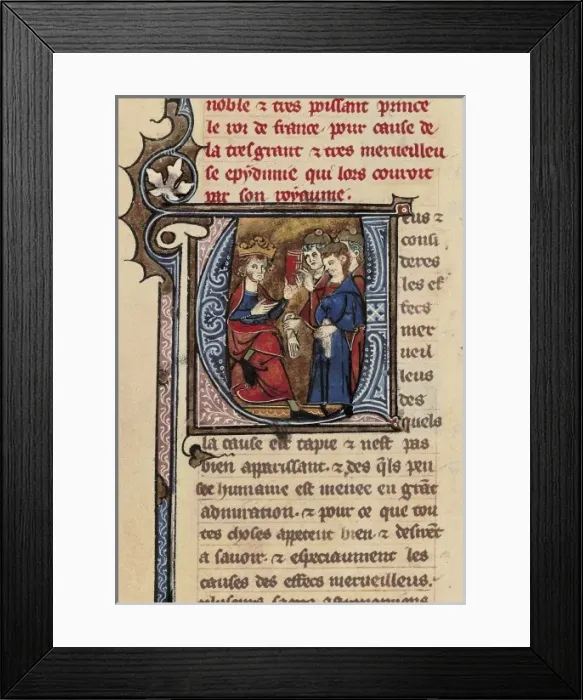 noble ⁊ tres poissant prince
le roi de france, pour cause de
la tresgrant ⁊ tres merueilleu
se epydimie qui lors couroit
par son royaume.
eus ⁊
consi
deres
les ef
fecs
mer
ueil
leus
des
quels
la cause est tapie ⁊ nest pas
bien apparissant. ⁊ des qls pen
see humaine est menee en grāt
admiration. ⁊ pour ce que tou
tes choses appetent bien ⁊ desirēt
a sauoir. ⁊ especiaument les
causes des effecs merueilleus.